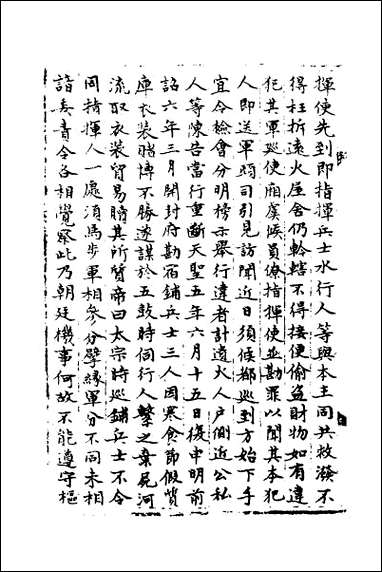 揮使先到即指揮兵士水行人等與本主同共救潑不
得枉拆遠火屋舍仍鈐轄不得接便偷盜財物如有違
犯其軍巡使廂虞候員僚指揮使並勘罪以聞其本犯
人即送軍頭司引見訪聞近日須候鄰巡到方始下手
宜令檢會分明榜示舉行違者計遺火人戶側近公私
人等陳告當行重斷天聖五年六月十五日復申明前
詔六年三月開封府勘宿鋪兵士三人因寒食節假賃
庫衣裝賭博不勝遂謀於五鼓時伺行人擊之棄屍河
流取衣裝貿易贖其所質帝曰太宗時巡鋪兵士不令
同指揮人一處須馬步軍相參分擘緣軍分不同未相
諳委音令各相覺察此乃朝廷機事何故不能遵守樞